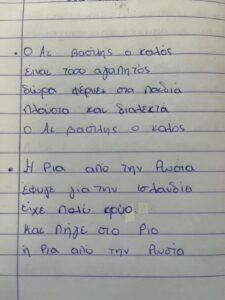 • Ο Αϊ Βασίλης ο καλός
είναι τοσο αγαπητός
δώρα φέρνει στα παιδιά
πλούσια και διαλεχτά
Ο Αϊ Βασίλης ο καλός
• Η Ρια από την Ρωσία
έφυγε για την Ισλανδία
είχε πολύ κρύο
και πήγε στο Ριο
η Ρια από την Ρωσία